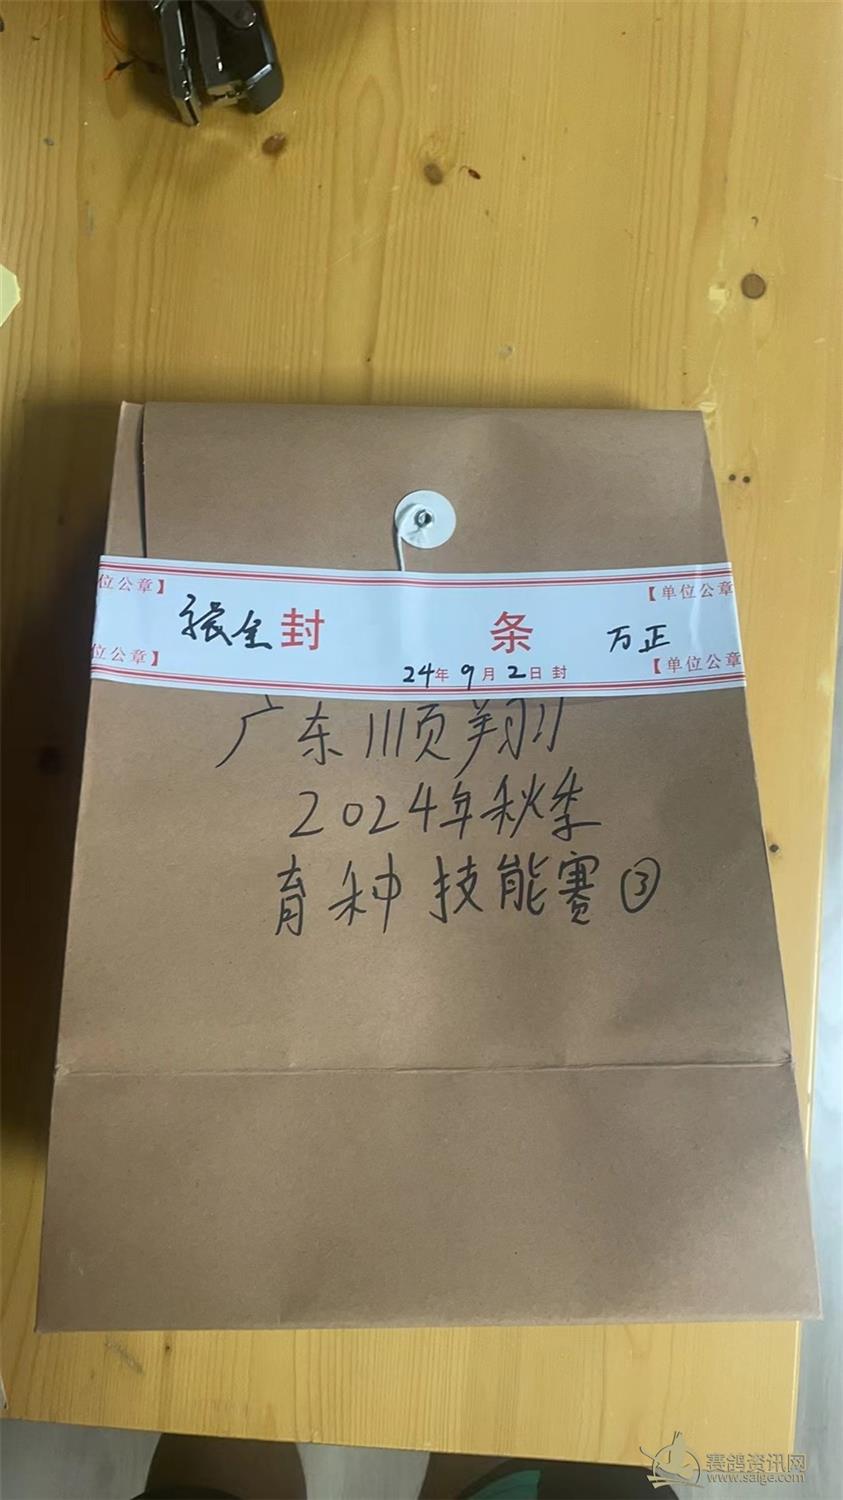 位公章】
【单位公章
张全 封 条 万正
位公章】
24年9月2日 封
【单位公章
广东顺翔
2024年秋季
育种技能赛③
赛鸽资讯网
www.saige.com